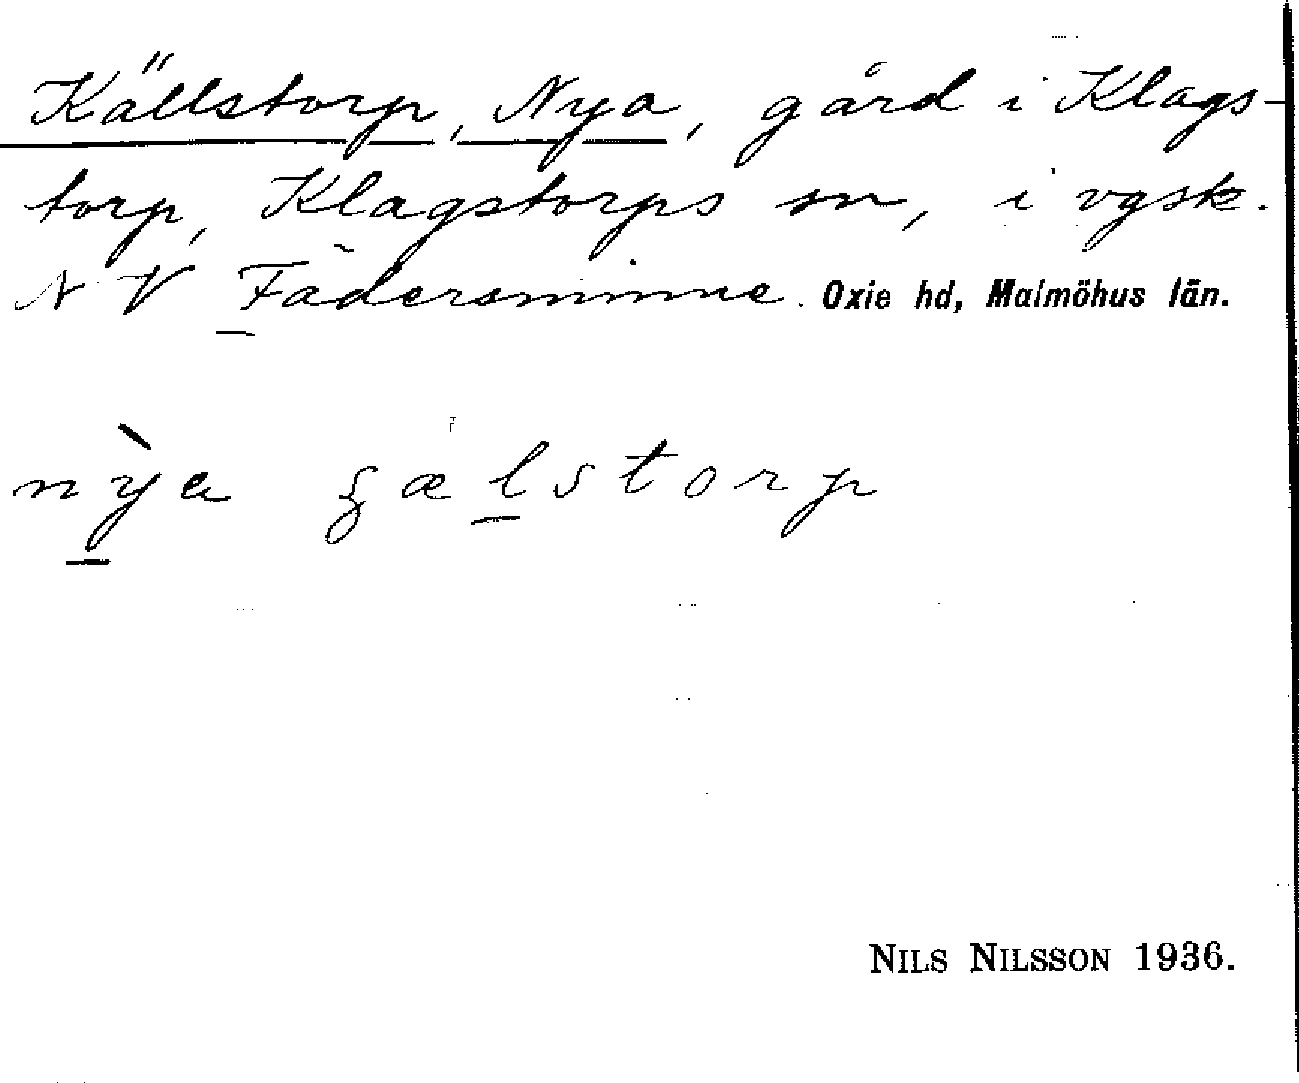 Källstorp, Nya, gård i Klags-
torp, Klagstorps sn, i vgsk.
NV Fädersminne. Oxie hd, Malmöhus län.
nỳa ʂælstorp
NILS NILSSON 1936.